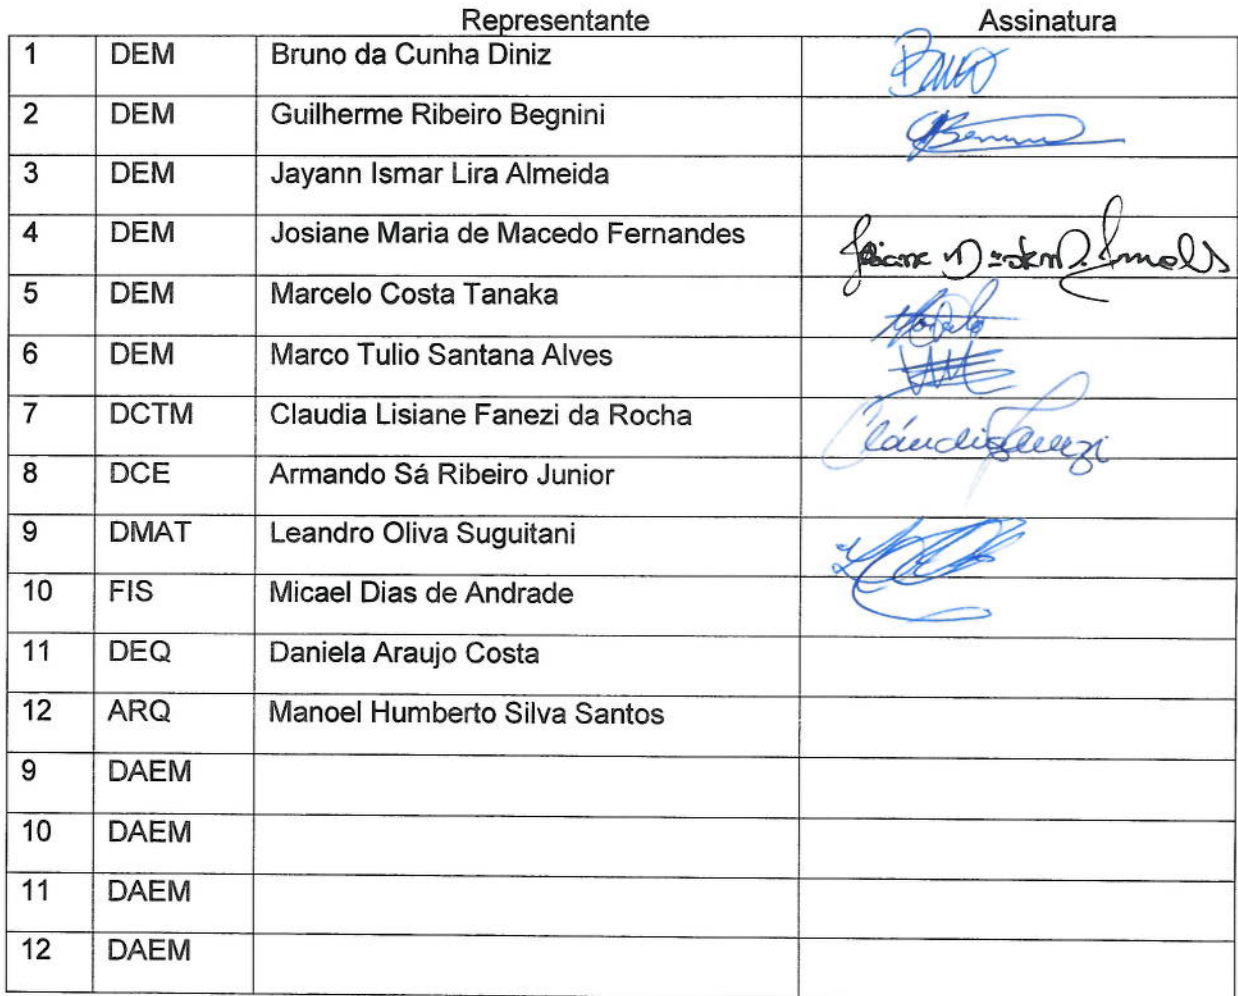 Representante Assinatura
1 DEM Bruno da Cunha Diniz Bruno
2 DEM Guilherme Ribeiro Begnini
3 DEM Jayann Ismar Lira Almeida
4 DEM Josiane Maria de Macedo Fernandes
5 DEM Marcelo Costa Tanaka
6 DEM Marco Tulio Santana Alves
7 DCTM Claudia Lisiane Fanezi da Rocha Cláudia Fanezi
8 DCE Armando Sá Ribeiro Junior
9 DMAT Leandro Oliva Suguitani
10 FIS Micael Dias de Andrade
11 DEQ Daniela Araujo Costa
12 ARQ Manoel Humberto Silva Santos
9 DAEM
10 DAEM
11 DAEM
12 DAEM